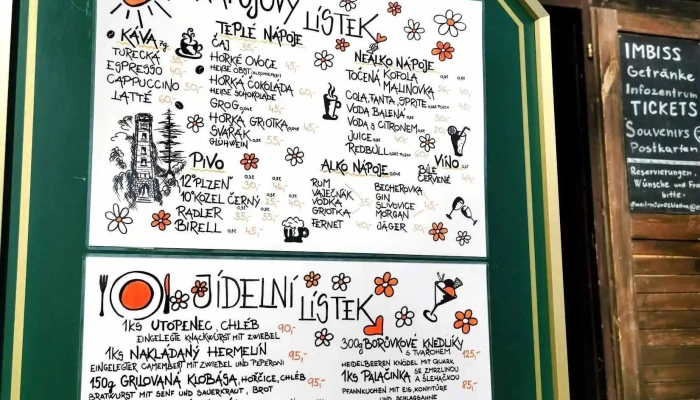 NÁPOJOVÝ LÍSTEK
KÁVA 7g.
TURECKÁ 35,-
ESPRESSO
CAPPUCCINO 50,-
LATTÉ 60,-
TEPLÉ NÁPOJE
ČAJ 35,-
HORKÉ OVOCE 45,-
HEIßE OBST (ALKOHOLFREI)
HORKÁ ČOKOLÁDA 60,-
HEIßE SCHOKOLADE
GROG 45,-
HORKÁ GRIOTKA 45,-
SVAŘÁK 55,-
GLÜHWEIN
NEALKO NÁPOJE
TOČENÁ KOFOLA
MALINOVKA
COLA, FANTA, SPRITE
VODA BALENÁ 30,-
VODA S CITRONEM 20,-
JUICE 40,-
REDBULL
PIVO
12° PLZEŇ 30,-
10° KOZEL ČERNÝ 25,- 40,-
RADLER 35,- 55,-
BIRELL 0,5ℓ 45,-
ALKO NÁPOJE
RUM
VAJEČNÁK
VODKA 35,-
GRIOTKA
FERNET 0,04ℓ 40,-
BECHEROVKA
GIN
SLIVOVICE 45,-
MORGAN
JÄGER 50,-
VÍNO
BÍLÉ
ČERVENÉ 44,-
JÍDELNÍ LÍSTEK
1KS UTOPENEC, CHLÉB 90,-
EINGELEGTE KNACKWURST MIT ZWIEBEL
1KS NAKLÁDANÝ HERMELÍN 95,-
EINGELEGTER CAMEMBERT MIT ZWIEBEL UND PEPERONI
150g GRILOVANÁ KLOBÁSA, HOŘČICE, CHLÉB 95,-
BRATWURST MIT SENF UND SAUERKRAUT, BROT
300g BORŮVKOVÉ KNEDLÍKY
S TVAROHEM 125,-
HEIDELBEEREN KNÖDEL MIT QUARK
1KS PALAČINKA SE ZMRZLINOU
A ŠLEHAČKOU 85,-
PFANNKUCHEN MIT EIS, KONFITÜRE
UND SCHLAGSAHNE
IMBISS
Getränke
Infozentrum
TICKETS
Souvenirs
Postkarten
Reservierungen,
Wünsche und
bitte: